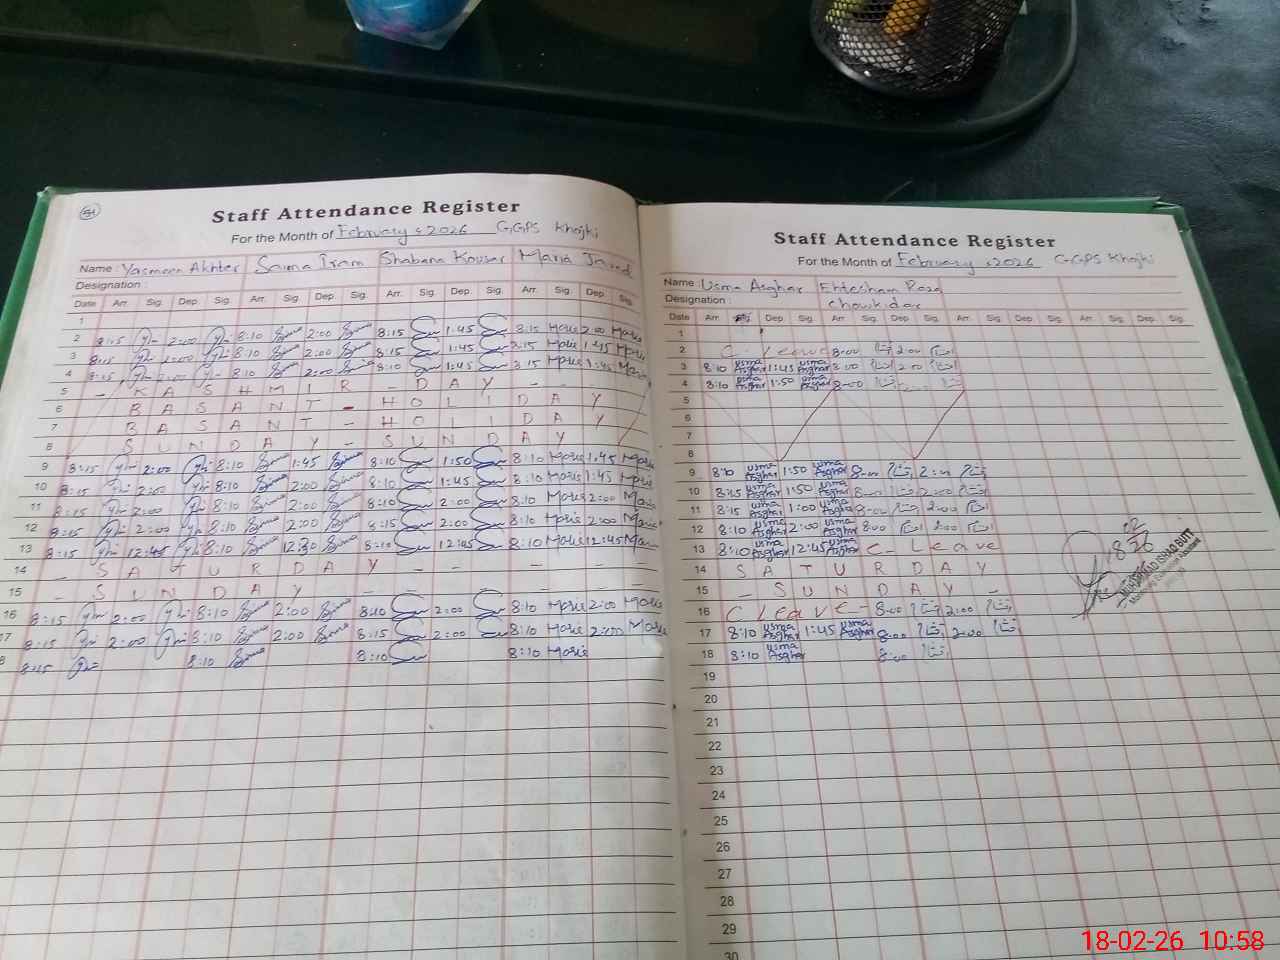 51
Staff Attendance Register
For the Month of February, 2026 GGPS Khojki
Name : Yasmeen Akhter Saima Iram Shabana Kousar Maria Javed
Designation :
Date Arr. Sig. Dep. Sig. Arr. Sig. Dep. Sig. Arr. Sig. Dep. Sig. Arr. Sig. Dep. Sig.
1
2 8:15 2:00 8:10 2:00 8:15 1:45 8:15 Maria 2:00 Maria
3 8:15 2:00 8:10 2:00 8:15 1:45 8:15 Maria 1:45 Maria
4 8:15 2:00 8:10 2:00 8:10 1:45 8:15 Maria 1:45 Maria
5 - KASHMIR - DAY - - -
6 BASANT - HOLIDAY
7 BASANT - HOLIDAY
8 SUNDAY - SUNDAY
9 8:15 2:00 8:10 1:45 8:10 1:50 8:10 Maria 1:45 Maria
10 8:15 2:00 8:10 2:00 8:10 1:45 8:10 Maria 1:45 Maria
11 8:15 2:00 8:10 2:00 8:10 2:00 8:10 Maria 2:00 Maria
12 8:15 2:00 8:10 2:00 8:15 2:00 8:10 Maria 2:00 Maria
13 8:15 12:45 8:10 12:30 8:10 12:45 8:10 Maria 12:45 Maria
14 - SATURDAY - - - - -
15 - SUNDAY - - - - -
16 8:15 2:00 8:10 2:00 8:10 2:00 8:10 Maria 2:00 Maria
17 8:15 2:00 8:10 2:00 8:15 2:00 8:10 Maria 2:00 Maria
8 8:15 8:10 8:10 8:10 Maria
Staff Attendance Register
For the Month of February, 2026 GGPS Khojki
Name : Usma Asghar Ehtesham Raza
Designation : Chowkidar
Date Arr. Dep. Sig. Arr. Sig. Dep. Sig. Arr. Sig. Dep. Sig. Arr. Sig. Dep. Sig.
1
2 C - Leave 8:00 2:00
3 8:10 Usma Asghar 1:45 Usma Asghar 8:00 2:00
4 8:10 Usma Asghar 1:50 Usma Asghar 8:00
5
6
7
8
9 8:10 Usma Asghar 1:50 Usma Asghar 8:00 2:00
10 8:15 Usma Asghar 1:50 Usma Asghar 8:00 2:00
11 8:15 Usma Asghar 1:00 Usma Asghar 8:00 2:00
12 8:10 Usma Asghar 2:00 Usma Asghar 8:00 2:00
13 8:10 Usma Asghar 12:45 Usma Asghar C - Leave
14 SATURDAY
15 - SUNDAY -
16 C Leave - 8:00 2:00
17 8:10 Usma Asghar 1:45 Usma Asghar 8:00 2:00
18 8:10 Usma Asghar 8:00
19
20
21
22
23
24
25
26
27
28
29
30
18 02 26
MUHAMMAD ISHAQ BUTT
18-02-26 10:58